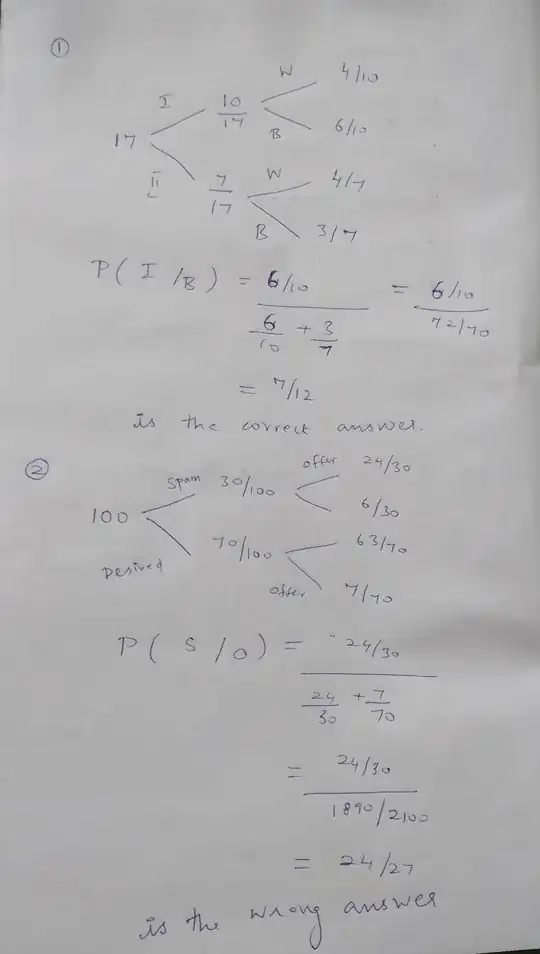 ①
W 4/10
I 10/17
B 6/10
17
II 7/17
W 4/7
B 3/7
P( I /B) = 6/10 / (6/10 + 3/7) = 6/10 / 72/70
= 7/12
is the correct answer.
②
offer 24/30
Spam 30/100
6/30
100
70/100
63/70
Desired
offer 7/70
P( S /O) = 24/30 / (24/30 + 7/70)
= 24/30 / 1890/2100
= 24/27
is the wrong answer